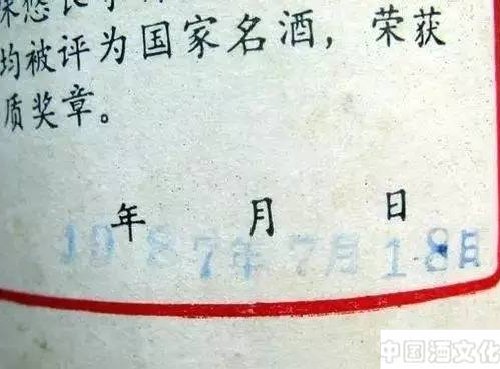 悠长
均被评为国家名酒，荣获
质奖章。
年 月 日
1987年7月18日
中国酒文化